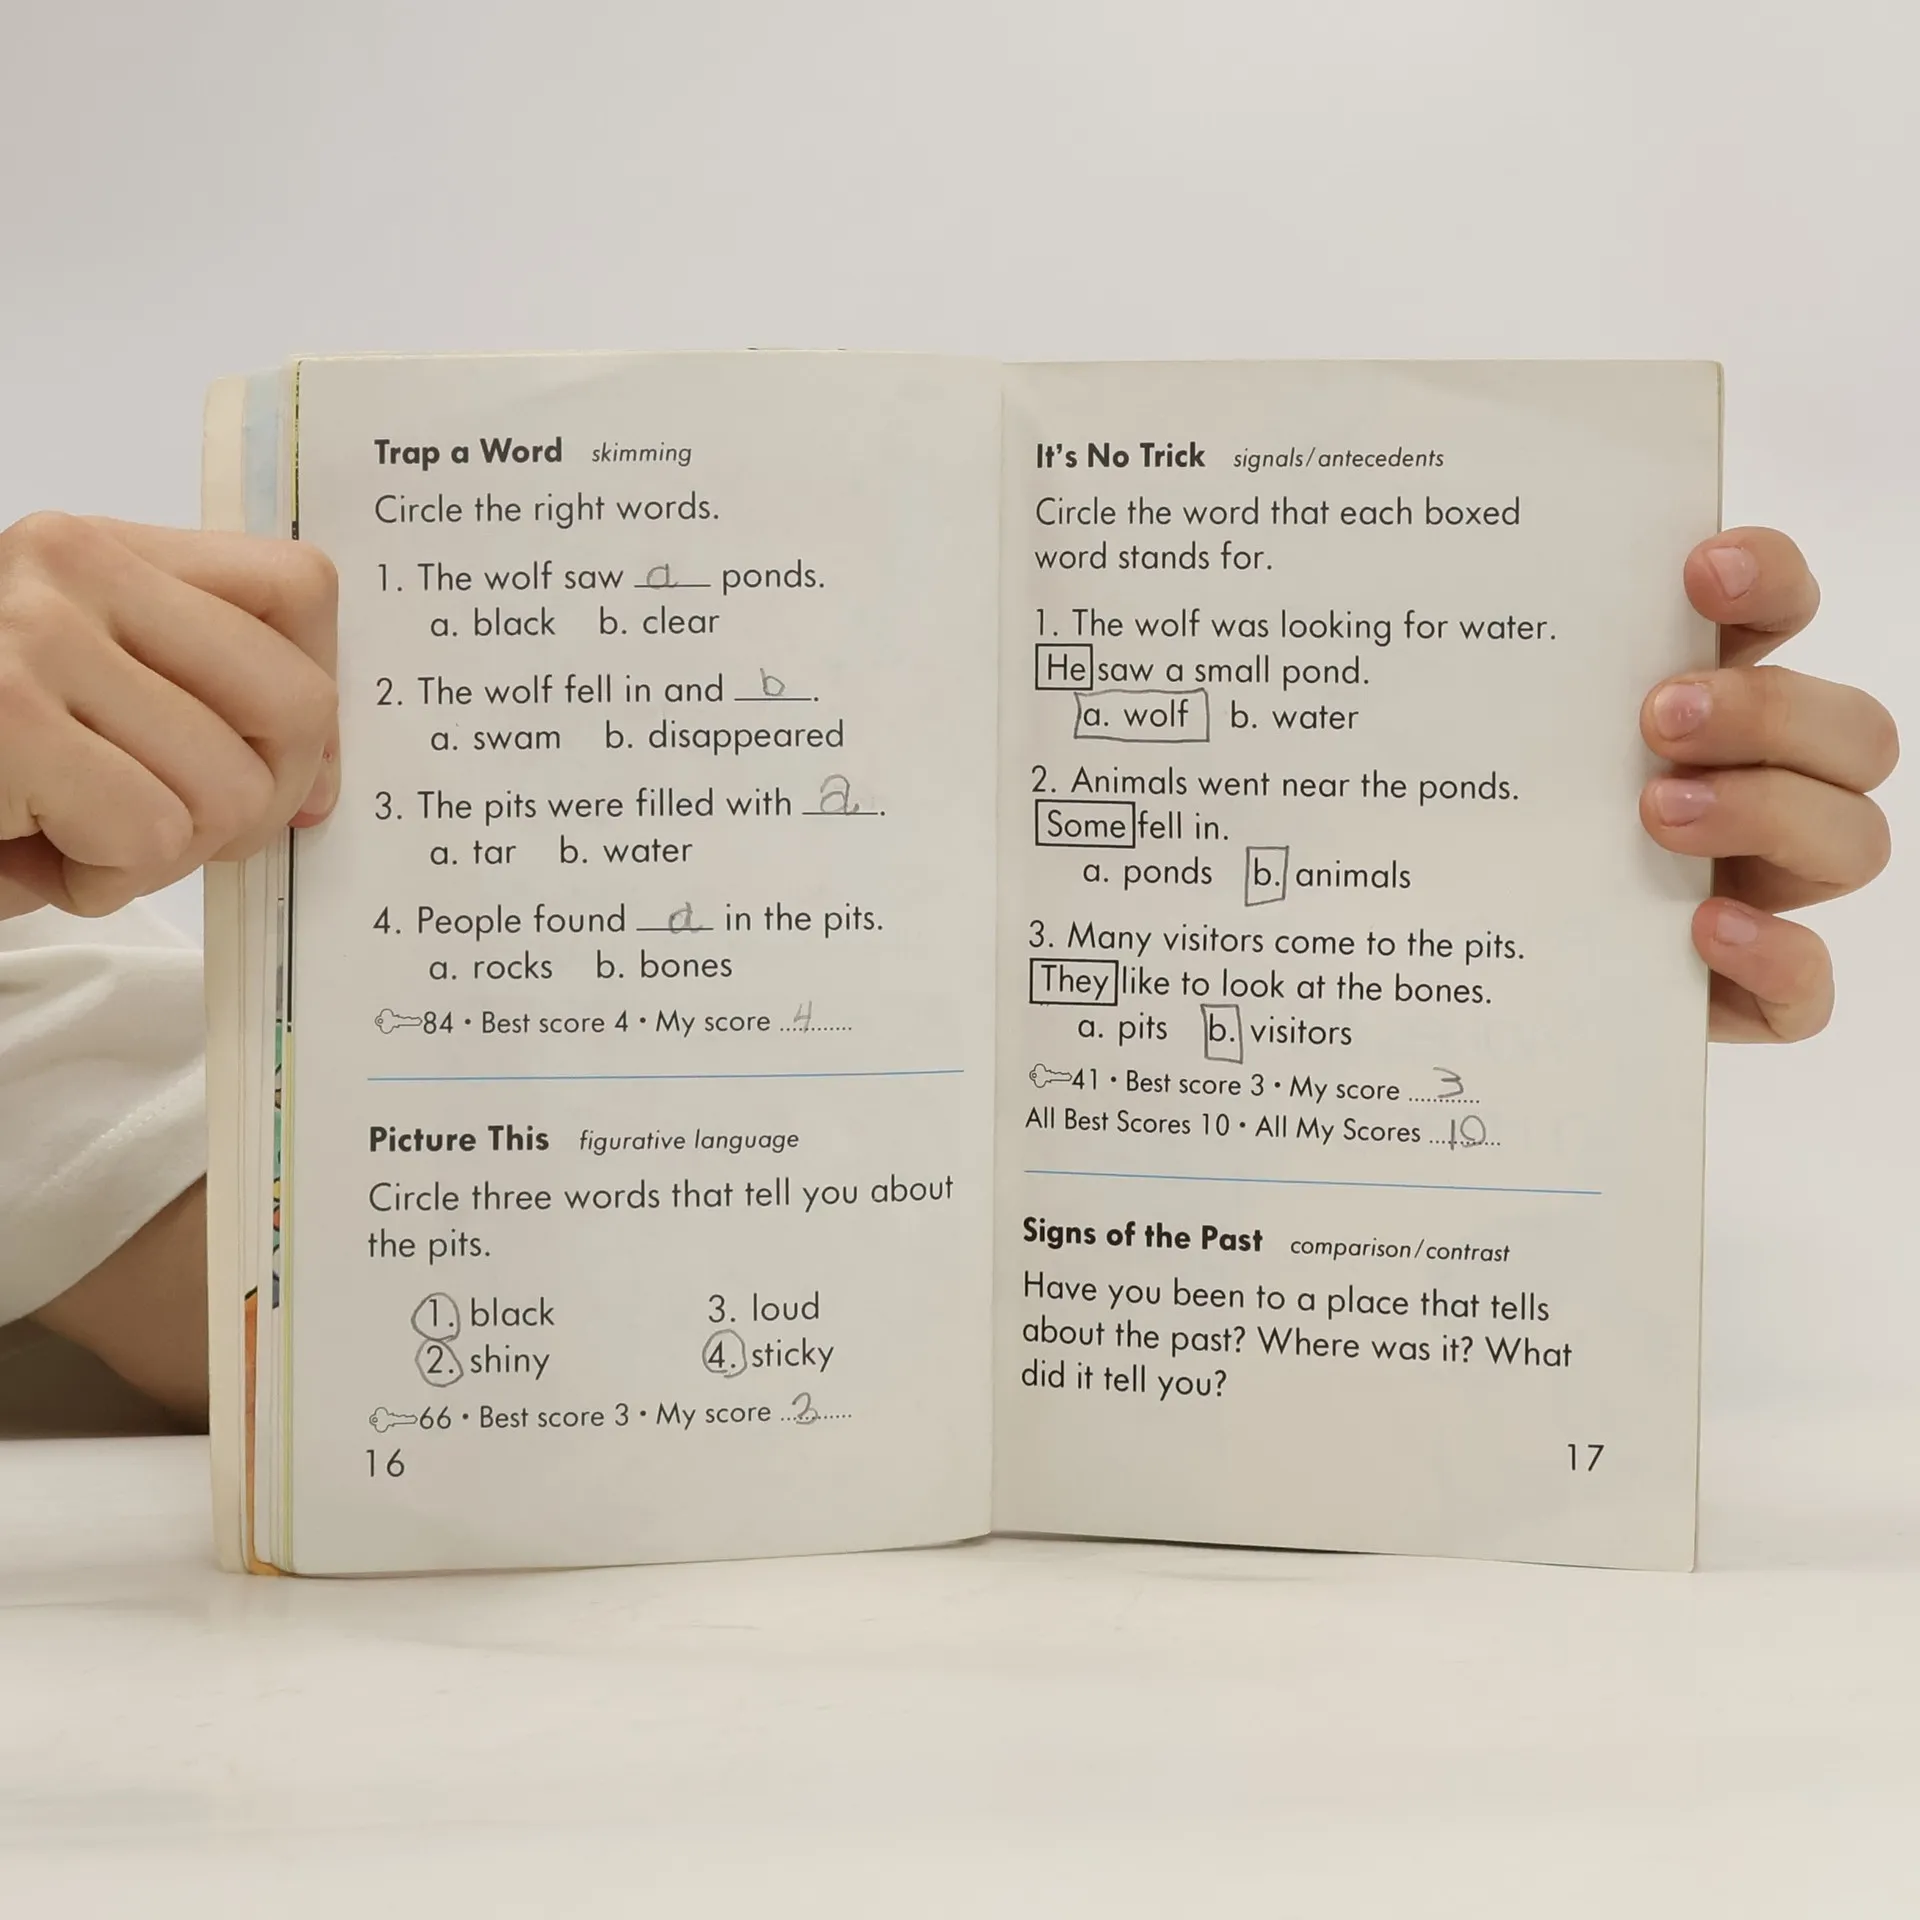 Trap a Word skimming
Circle the right words.
1. The wolf saw a ponds.
a. black b. clear
2. The wolf fell in and b.
a. swam b. disappeared
3. The pits were filled with a.
a. tar b. water
4. People found a in the pits.
a. rocks b. bones
84 • Best score 4 • My score ..4.......
Picture This figurative language
Circle three words that tell you about
the pits.
1. black 3. loud
2. shiny 4. sticky
66 • Best score 3 • My score ..3......
16
It's No Trick signals/antecedents
Circle the word that each boxed
word stands for.
1. The wolf was looking for water.
He saw a small pond.
a. wolf b. water
2. Animals went near the ponds.
Some fell in.
a. ponds b. animals
3. Many visitors come to the pits.
They like to look at the bones.
a. pits b. visitors
41 • Best score 3 • My score ....3.....
All Best Scores 10 • All My Scores ...10...
Signs of the Past comparison/contrast
Have you been to a place that tells
about the past? Where was it? What
did it tell you?
17